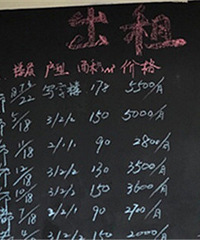 出租
楼层 户型 面积㎡ 价格
22 写字楼 178 5500/月
5/18 3/2/2 150 5000/月
/18 2/1/1 90 2800/月
12/18 3/2/2 130 3500/月
/18 3/2/2 150 3600/月
7/18 2/2/1 90 2700/月
4/8 3/2/2 150 2000/月